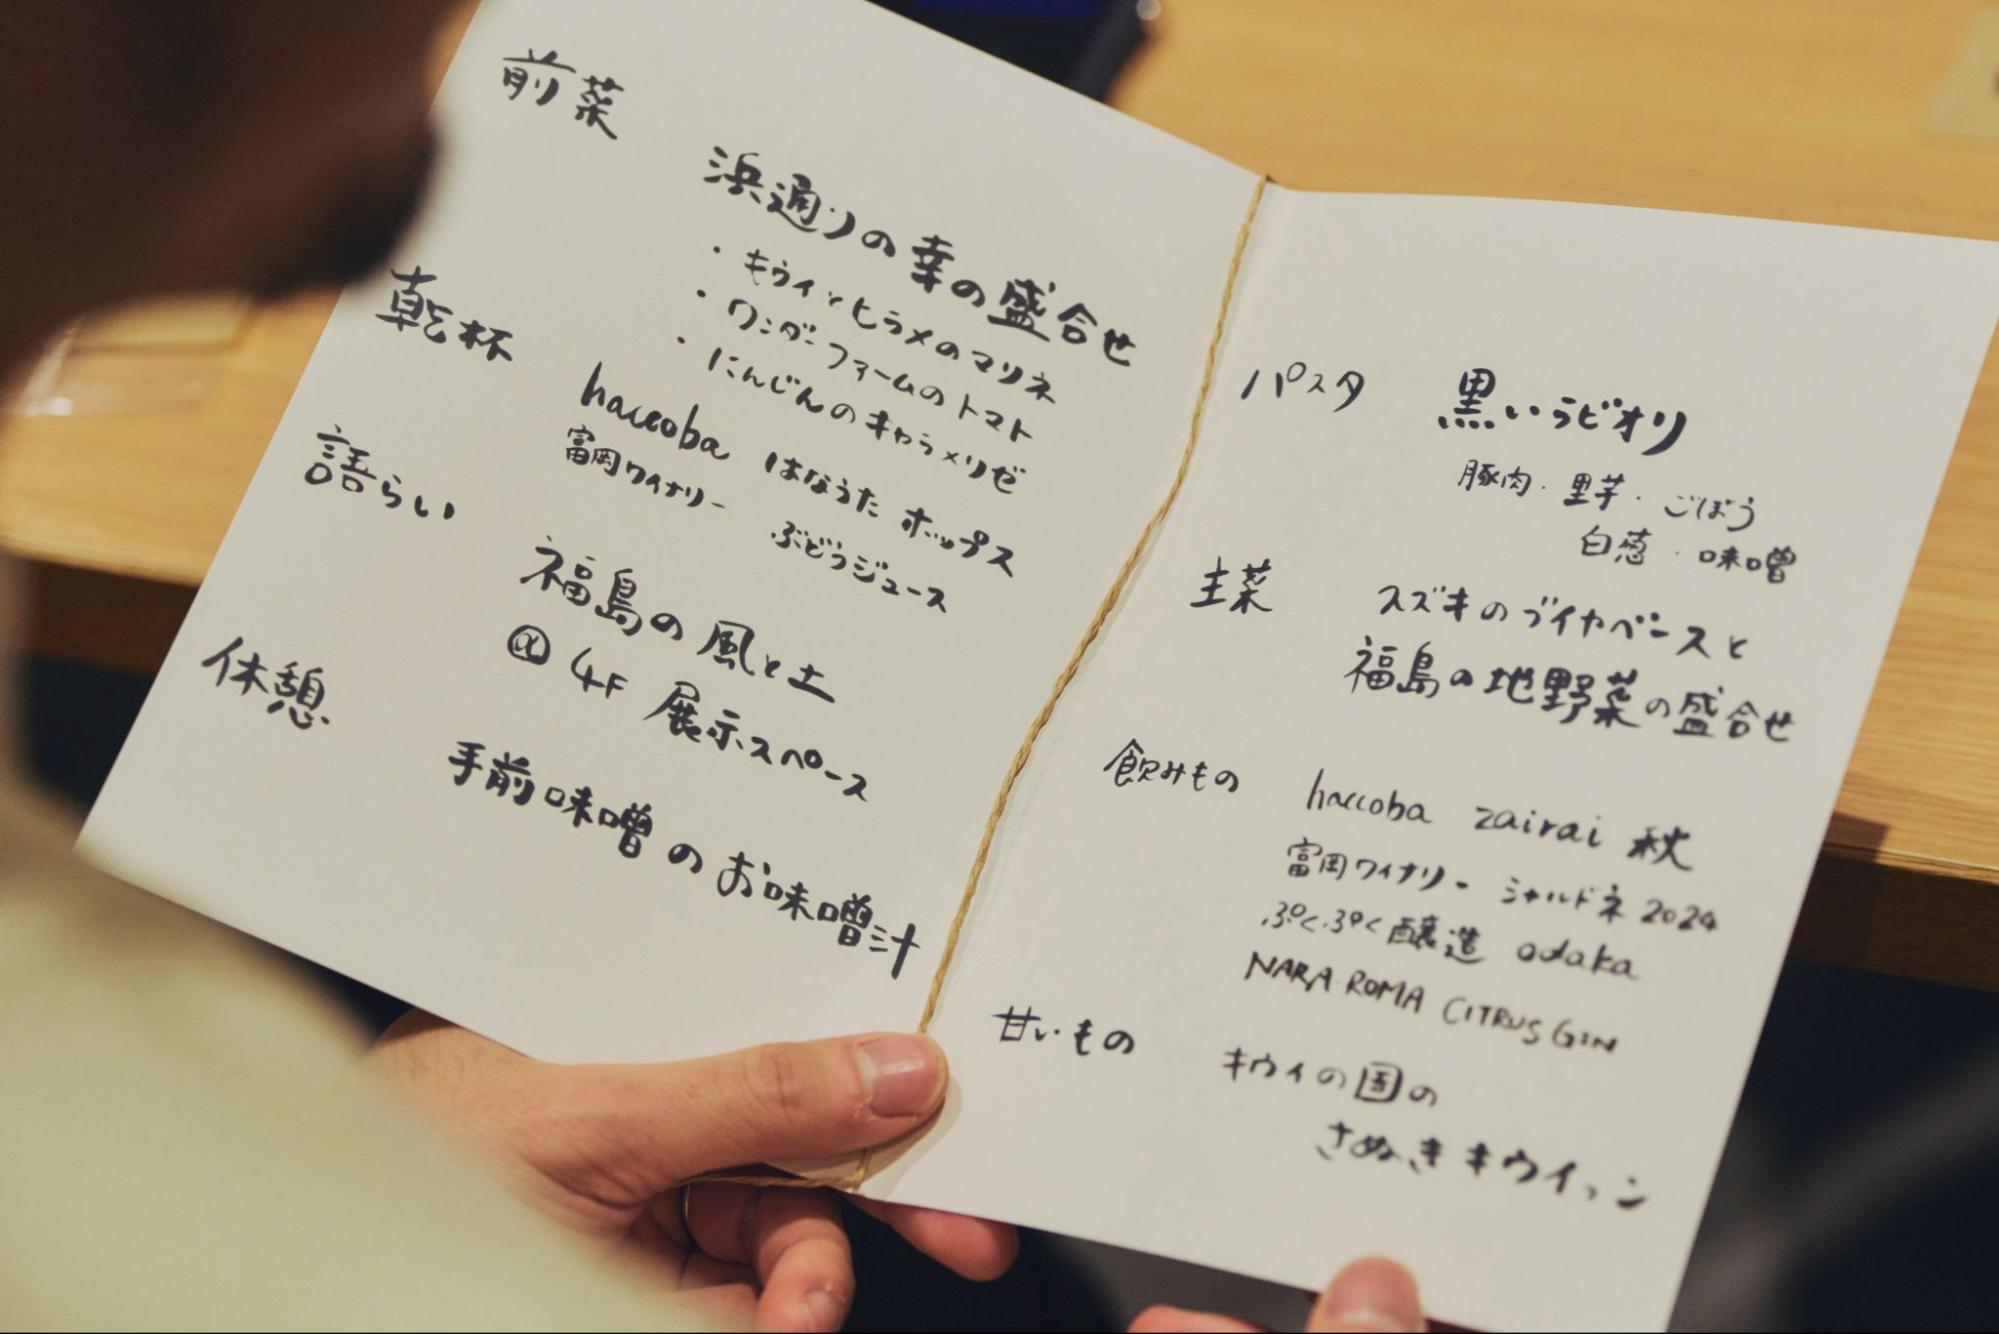 前菜
浜通りの幸の盛合せ
・キウイとヒラメのマリネ
・ワンダーファームのトマト
・にんじんのキャラメリゼ
乾杯
haccoba はなうたホップス
富岡ワイナリー ぶどうジュース
語らい
福島の風と土
@ 4F 展示スペース
休憩
手前味噌のお味噌汁
パスタ 黒いラビオリ
豚肉・里芋・ごぼう
白葱・味噌
主菜 スズキのブイヤベースと
福島の地野菜の盛合せ
飲みもの haccoba zairai 秋
富岡ワイナリー シャルドネ 2024
ぷくぷく醸造 odaka
NARA ROMA CITRUS GIN
甘いもの キウイの国の
さぬきキウイっこ